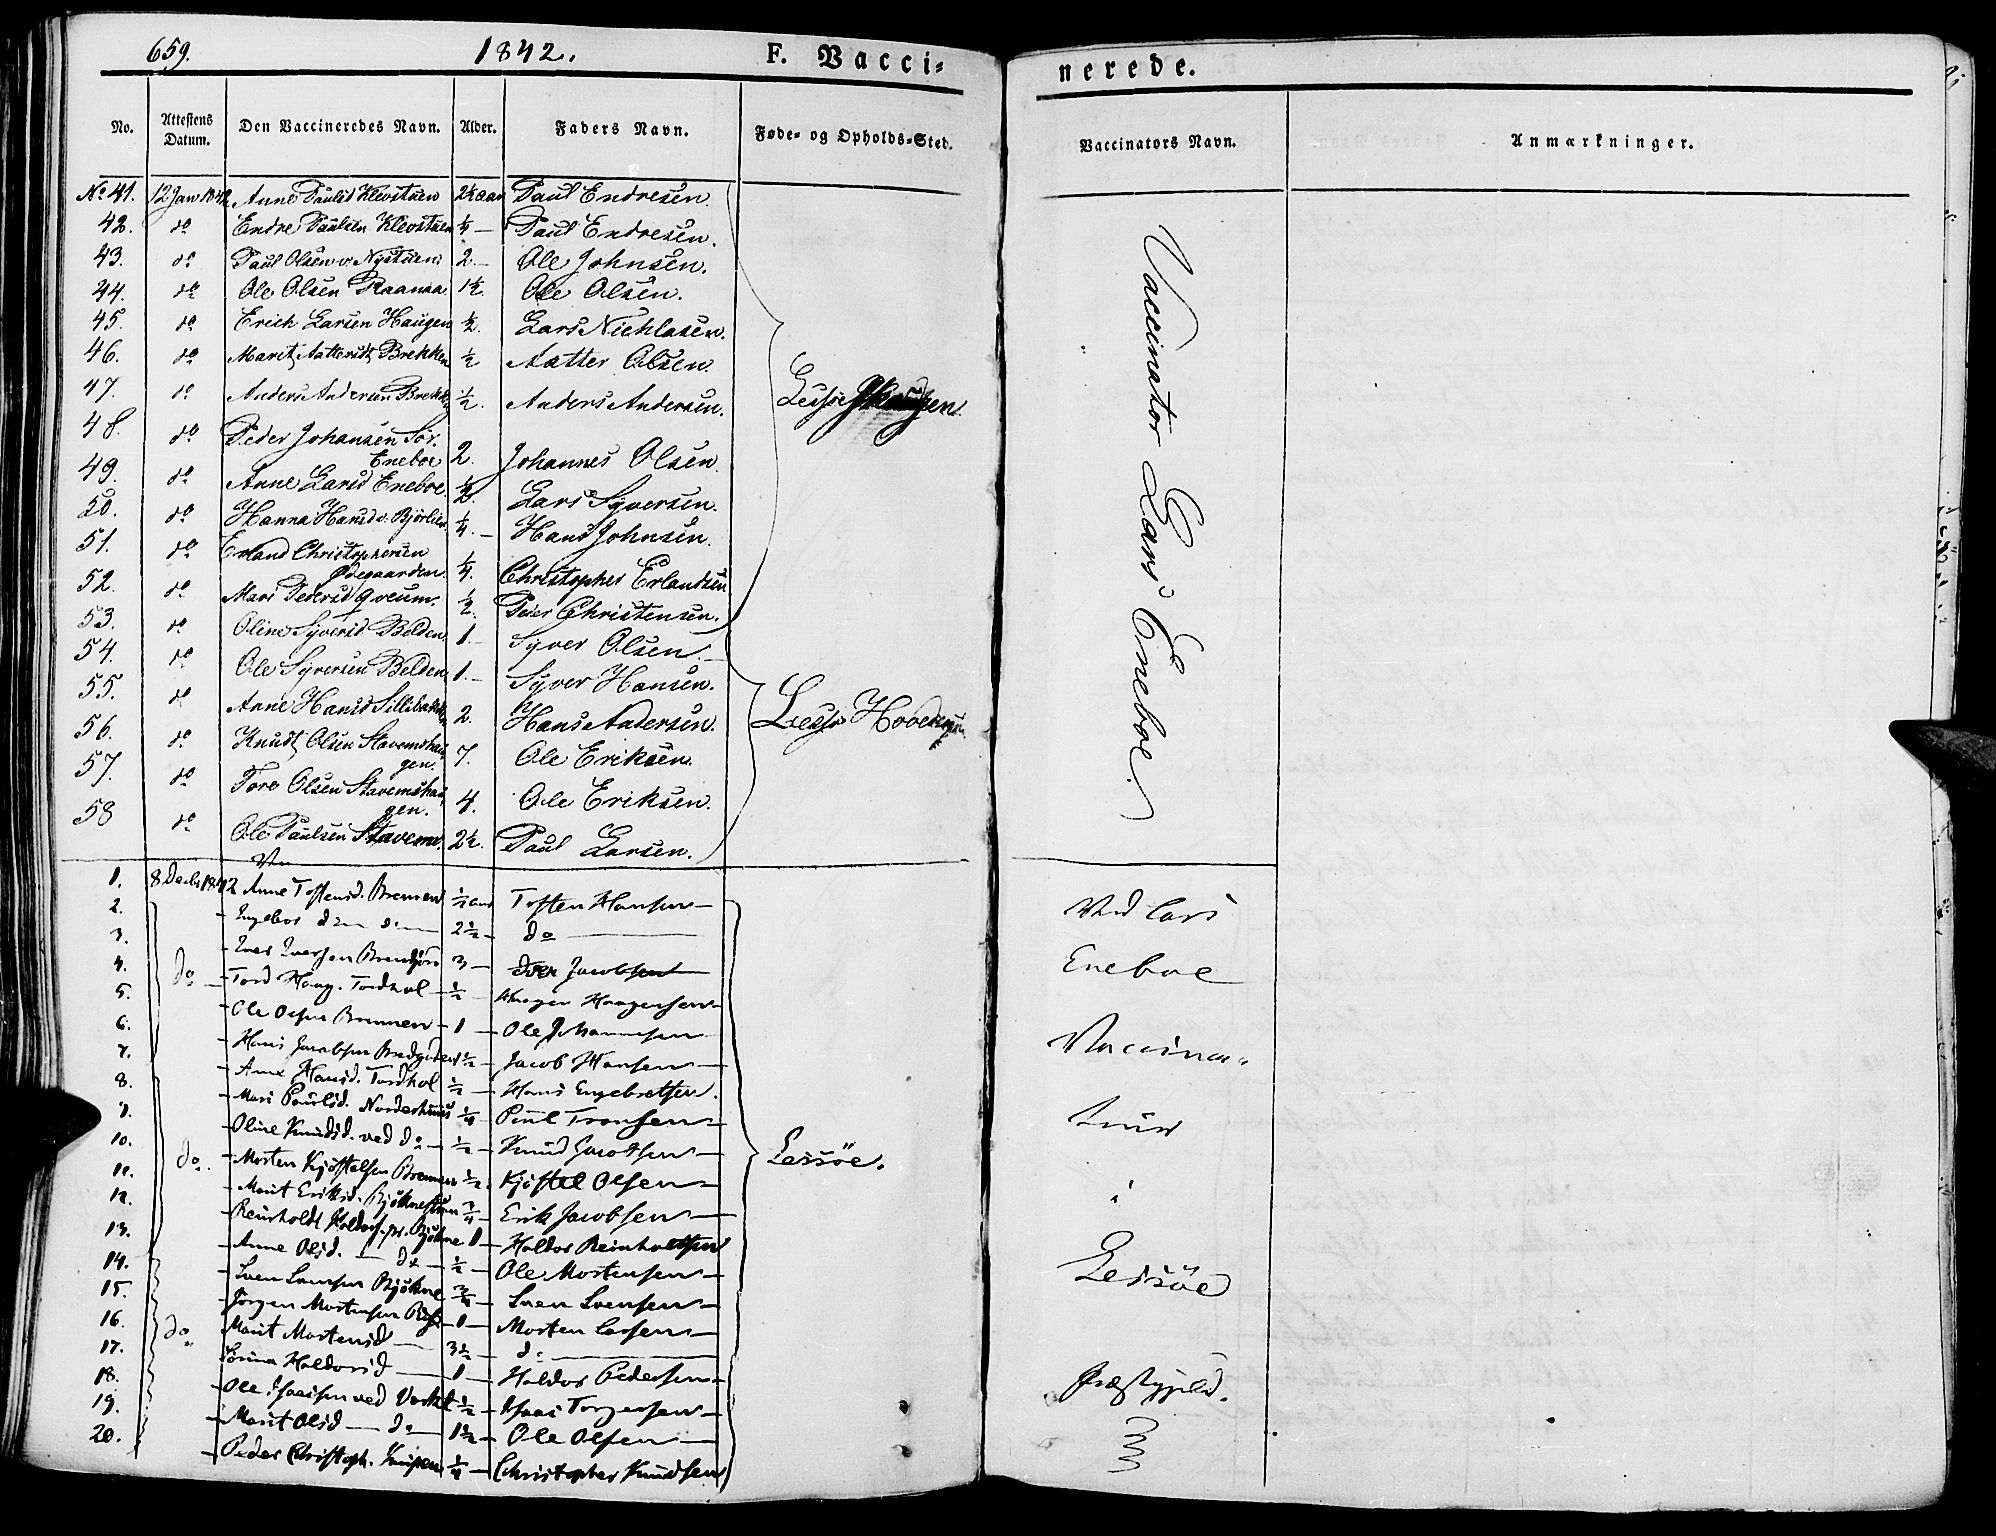 659. 1842. F. Vacci-
nerede.
No. Attestens Datum. Den Vaccineredes Navn. Alder. Faders Navn. Føde- og Opholds-Sted.
Vaccinators Navn. Anmærkninger.
No 41. 12 Jan 1842 Anne Paulsd Klevstuen 2½ aar Paul Endresen.
42. do Endre Paulsen Klevstuen ¼ — Paul Endresen.
43. do Paul Olsen v. Nystuen 2. — Ole Johnsen.
44. do Ole Olsen Raanaa 1½. Ole Olsen.
45. do Erich Larsen Haugen ½. Lars Nichlasen.
46. do Marit Aattersdt Brekken ½ Aatter Olsen.
47. do Anders Andersen Brekk ½. Anders Andersen.
Lessøe Skougen
48. do Peder Johansen Sør.
Eneboe 2. Johannes Olsen.
49. do Anne Larsd Eneboe ½. Lars Syversen.
50. do Hanna Hansd v. Bjorlien ¼. — Hans Johnsen.
51. do Erland Christophersen
Ødegaarden. ¼. Christopher Erlandsen
52. do Mari Pedersd Qveum. ½ Peder Christensen.
53. do Oline Syversd Belden 1. — Syver Olsen —
54. do Ole Syversen Belden 1. — Syver Hansen.
55. do Anne Hansd Sillibakken 2. Hans Andersen.
Lessø Hoved
56. do Knudt Olsen Stavemshau
gen. 7. Ole Eriksen.
57. do Tore Olsen Stavemshau
gen. 4. Ole Eriksen.
58 do Ole Paulsen Stavem. 2½. Paul Larsen.
Vaccinator Lars Eneboe.
1. 8 Decbr 1842 Anne Tostensd. Brennen ½ aar Tosten Hansen —
2. Engebor d — 2½ — do —
3. Iver Iversen 3 — Iver Jacobsen
4. do Tord Haag. Tordhol — ½ — Haagen Haagensen —
5. Ole Olsen Brennen — 1 — Ole Johannesen
6. Hans Jacobsen ½ — Jacob Hansen —
7. Anne Hansd. Tordhol ½ — Hans Engebretsen.
8. Mari Paulsd. Norderhuus ¼ — Paul Tronsen —
9. Oline Knudsd. ved do — ½ — Knud Jacobsen —
10. do. Morten Kjøstelsen Brennen ½ — Kjøstel Olsen —
11. Marit Eriksd. Bjøknestuen ¾ — Erik Jacobsen —
12. Reinholdt Haldors. Bjøkne 1 — Haldor Reinholtsen
13. Anne Olsd. — do — ½ — Ole Mortensen —
14. Sven Svensen Bjøkne ¾ — Sven Svensen —
15. Jørgen Mortensen — 1 — Morten Larsen —
16. do. Marit Mortensd — 3½ — do —
17. Sørina Haldorsd — 1 — Haldor Pedersen —
18. Ole Isaacsen ved Verket ½ — Isaac Torgersen —
19. Marit Olsd — do — 1½ — Ole Olsen —
20. Peder Christoph. ¼ — Christopher Knudsen
Lessøe.
Ved Lars
Eneboe
Vaccina-
teur
i
Lessøe
Præstgjeld.